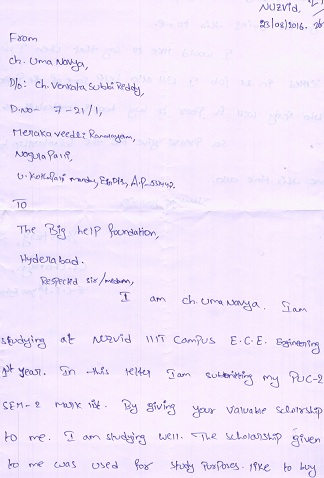 NUZVID,
23/08/2016.
From
Ch. Uma Navya,
D/o: Ch. Venkata Subbi Reddy,
D.no- 7-21/1,
Meraka veedhi Ramalayam,
U. Kothapalli mandal,
To
The Big help foundation,
Hyderabad.
Respected sir/medam,
I am ch. Uma Navya. I am
studying at Nuzvid IIIT Campus E.C.E. Engineering
1st year. In this letter I am submitting my PUC-2
SEM-2 mark list. By giving your valuable scholarship
to me. I am studying well. The scholarship given
to me was used for study purposes. like to buy